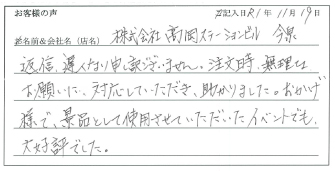 お客様の声
ご記入日 R1年 11月 19日
お名前&会社名（店名） 株式会社 高岡ステーションビル 今泉
返信、遅くなり申し訳ございません。注文時、無理な
お願いに、対応していただき、助かりました。おかげ
様で、景品として使用させていただいたイベントでも、
大好評でした。